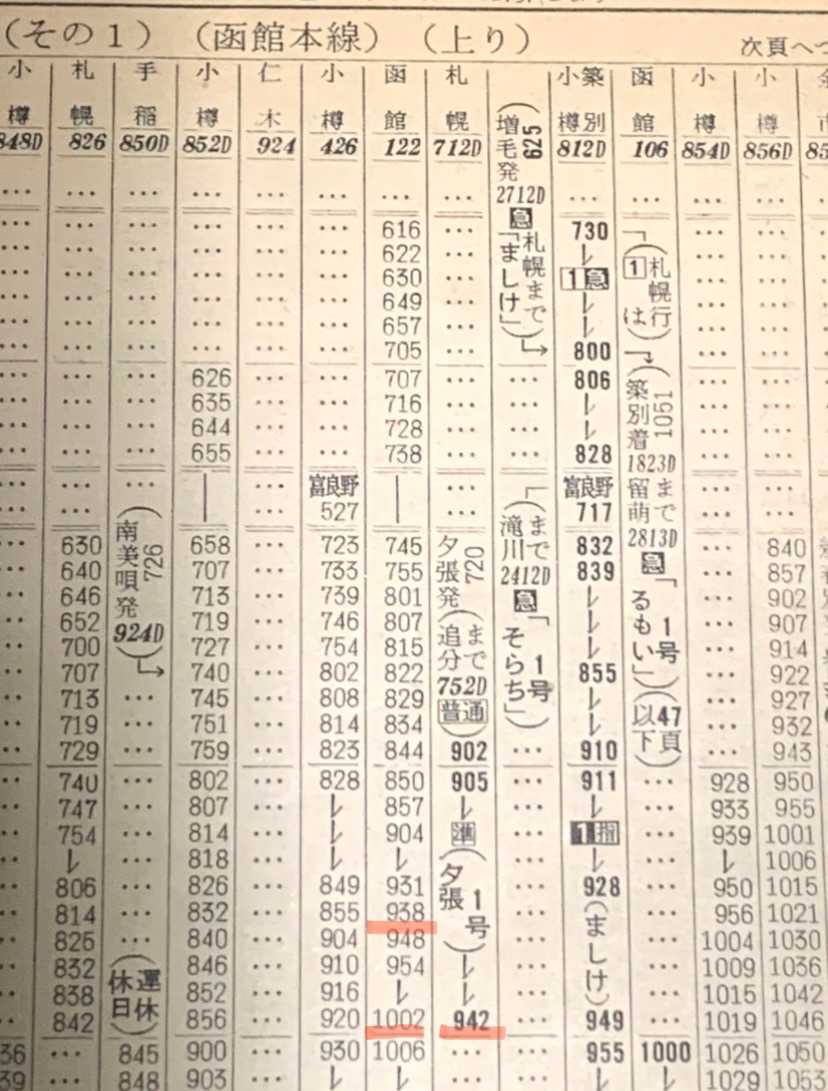 (その1) (函館本線) (上り)
次頁へつ
小樽 札幌 手稲 小樽 仁木 小樽 函館 札幌 小樽 築別 函館 小樽 小樽
848D 826 850D 852D 924 426 122 712D 812D 106 854D 856D
… … … … … … … … … … … …
616 … 730
622 … レ
630 … 1急
649 … レ
657 … レ
705 … 800
626 … … 707 … … 806
635 … … 716 … … レ
644 … … 728 … … レ
655 … … 738 … … 828
富良野 富良野
527 717
630 658 … 723 745 832 … 840
640 707 … 733 755 839 … 857
646 713 … 739 801 レ … 902
652 719 … 746 807 レ … 907
700 727 … 754 815 レ … 914
707 740 … 802 822 855 … 922
713 … 745 … 808 829 レ … 927
719 … 751 … 814 834 レ … 932
729 … 759 … 823 844 902 … 910 … 943
740 … 802 … 828 850 905 … 911 … 928 950
747 … 807 … レ 857 レ … レ … 933 955
754 … 814 … レ 904 準 … 1指 … 939 1001
レ … 818 … レ レ … レ … レ 1006
806 … 826 … 849 931 … 928 … 950 1015
814 … 832 … 855 938 … … 956 1021
826 … 840 … 904 948 … … 1004 1030
832 846 … 910 954 レ … … 1009 1036
838 852 … 916 レ レ … … 1015 1042
842 856 … 920 1002 942 … 949 … 1019 1046
36 … 845 900 … 930 1006 … … 955 1000 1026 1050
39 … 848 903 … レ レ … … レ レ 1029 1053
(南美唄発726 924D)
(運休 休日)
夕張発720
(追分まで 752D 普通)
(夕張1号)
(増毛発625 2712D 急「ましけ」札幌まで)
(滝川まで 2412D 急「そらち1号」)
(ましけ)
「(1札幌行は)
(築別着1051 1823D 留萌まで 2813D 急「るもい1号」)
(以下47頁)